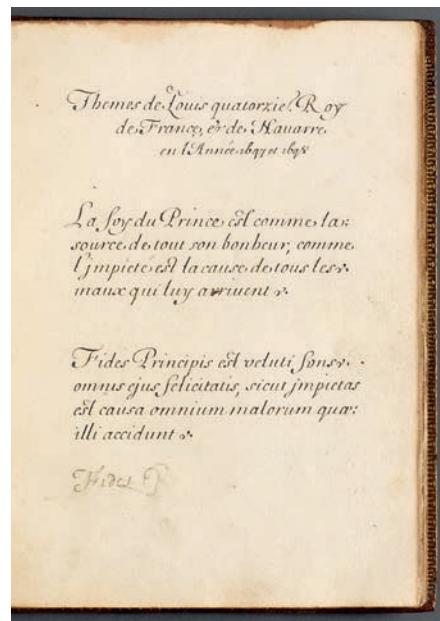 Themes de Louis quatorzie.e Roy
de France, et de Nauarre
en l'Année 1647 et 1648
La foy du Prince est comme la
source de tout son bonheur, comme
l'jmpieté est la cause de tous les
maux qui luy arriuent
Fides Principis est veluti fons
omnis ejus felicitatis, sicut jmpietas
est causa omnium malorum quæ
illi accidunt
Fides P